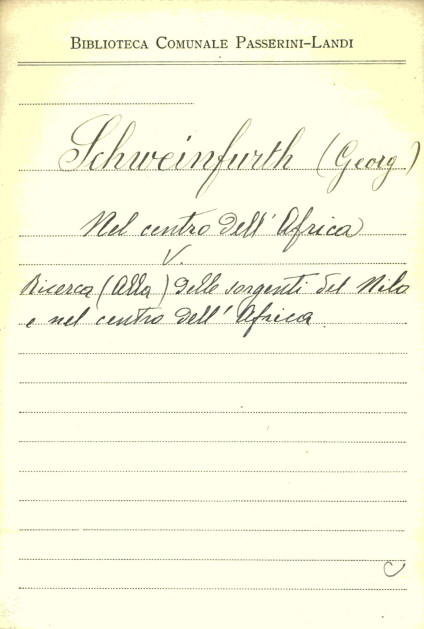 Biblioteca Comunale Passerini-Landi
Schweinfurth (Georg)
Nel centro dell'Africa
V.
Ricerca (Alla) delle sorgenti del Nilo
e nel centro dell'Africa.
C